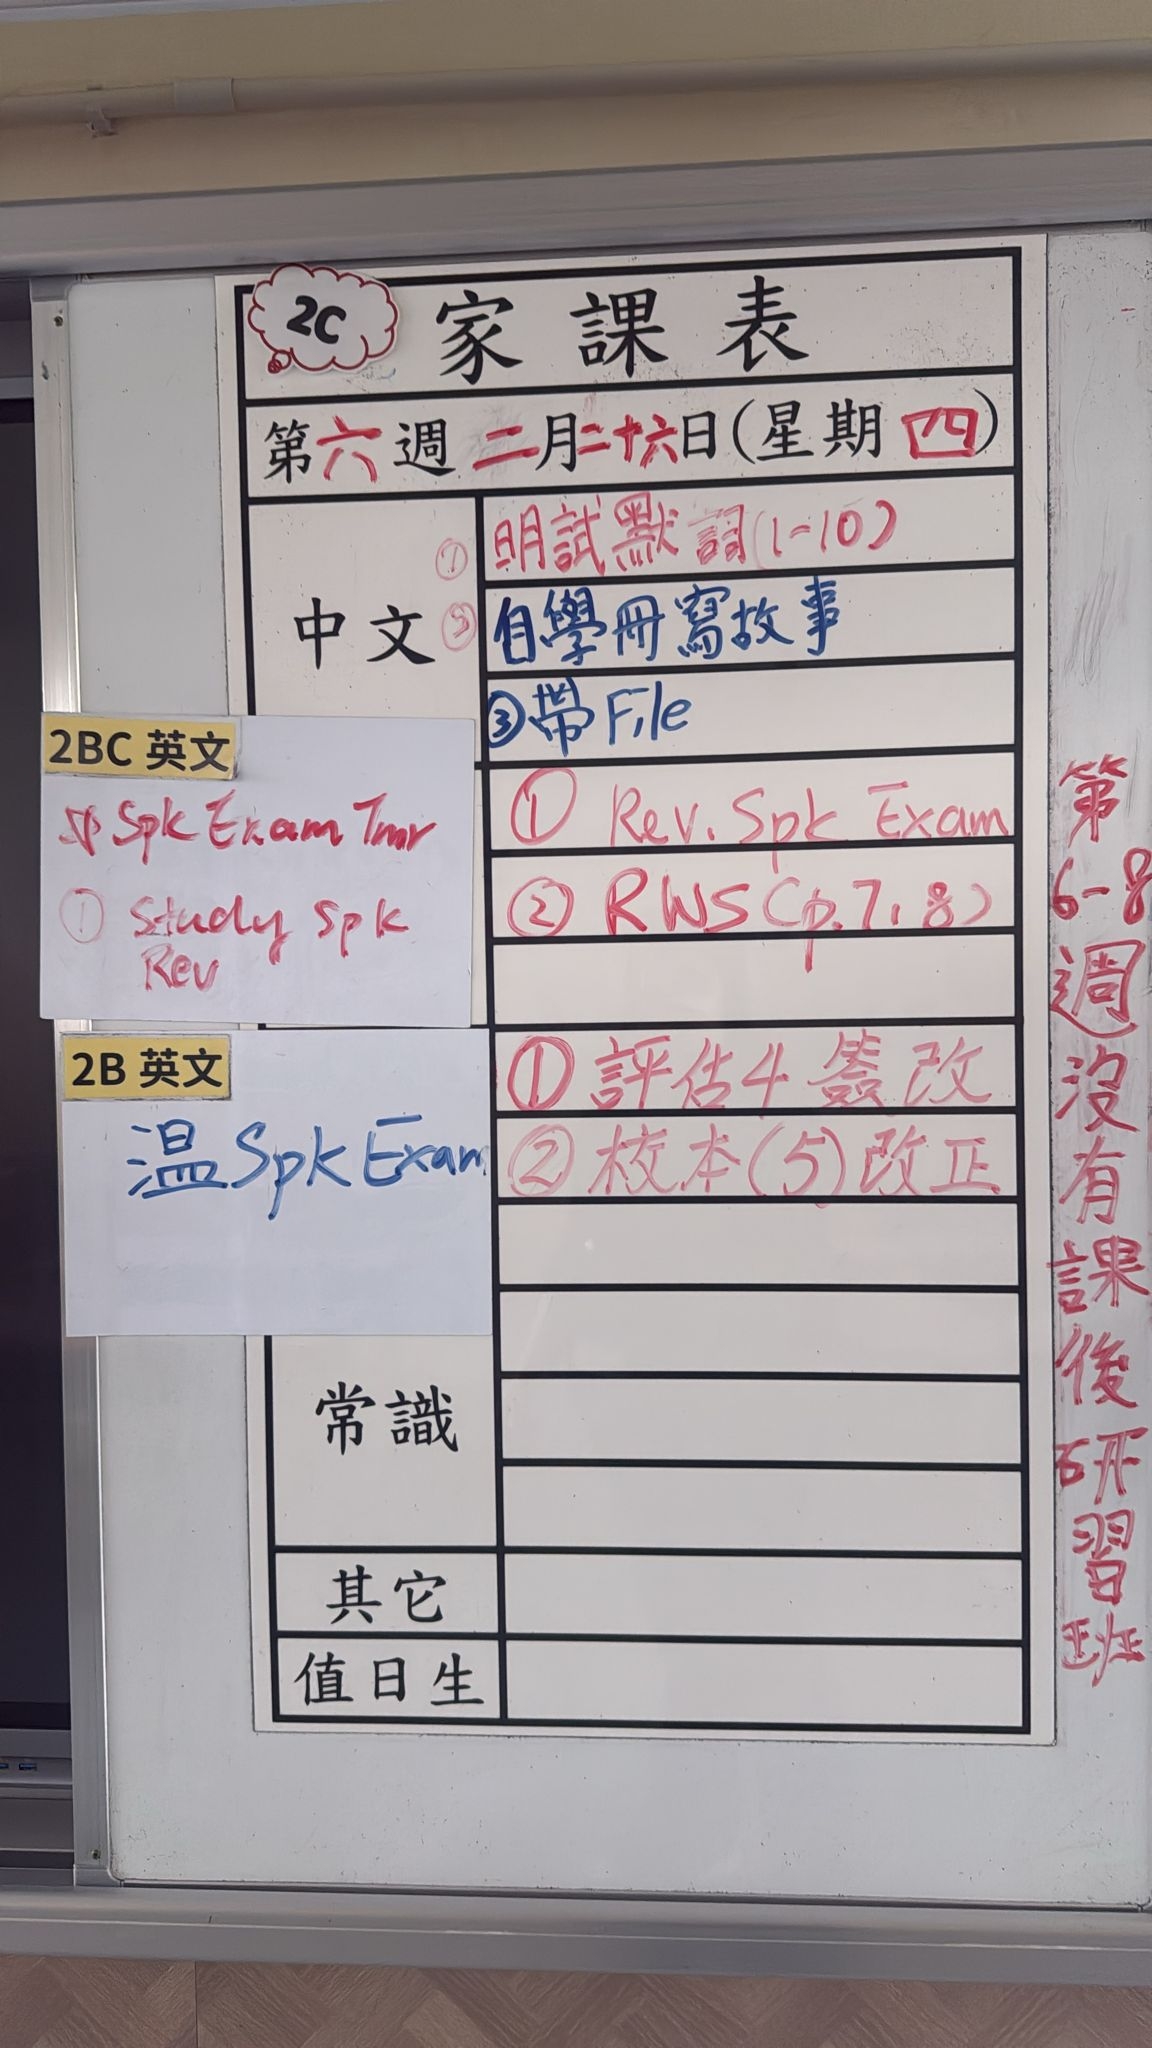 2C 家課表
第六週 二月二十六日(星期四)
中文
① 明試默詞(1-10)
② 自學冊寫故事
③帶File
2BC 英文
Spk Exam Tmr
① Study Spk
Rev
① Rev. Spk Exam
② RWS (p.7, 8)
2B 英文
温Spk Exam
① 評估4 簽改
② 校本(5)改正
常識
其它
值日生
第6-8週沒有課後研習班